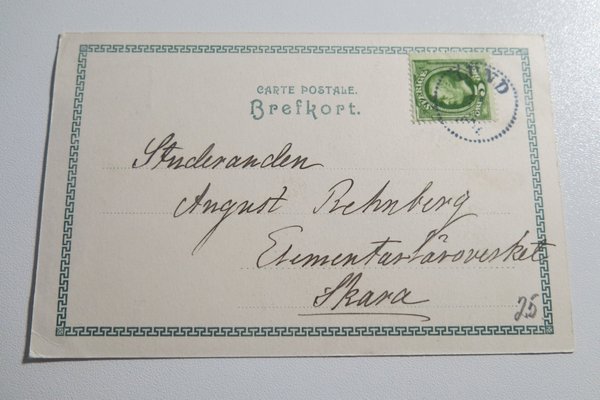 CARTE POSTALE.
Brefkort.
SVERIGE
5
LUND
Studeranden
August Rehnberg
Elementarläroverket
Skara
25